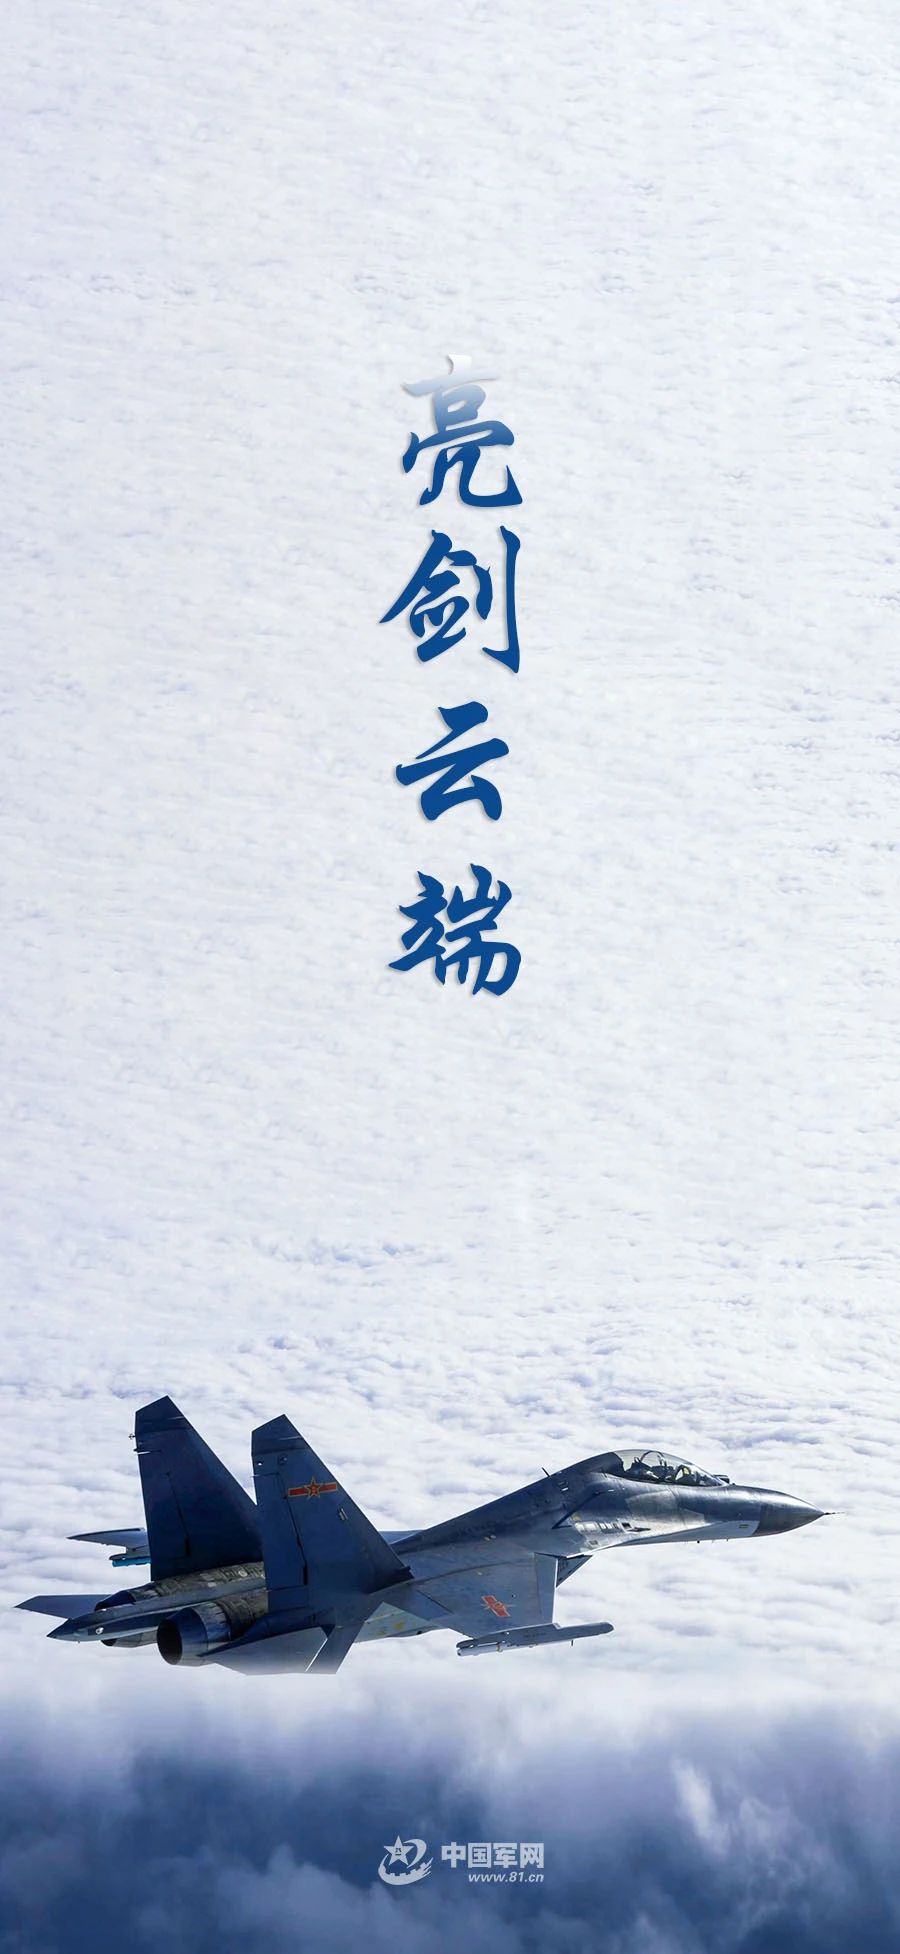 亮剑云端
中国军网
www.81.cn